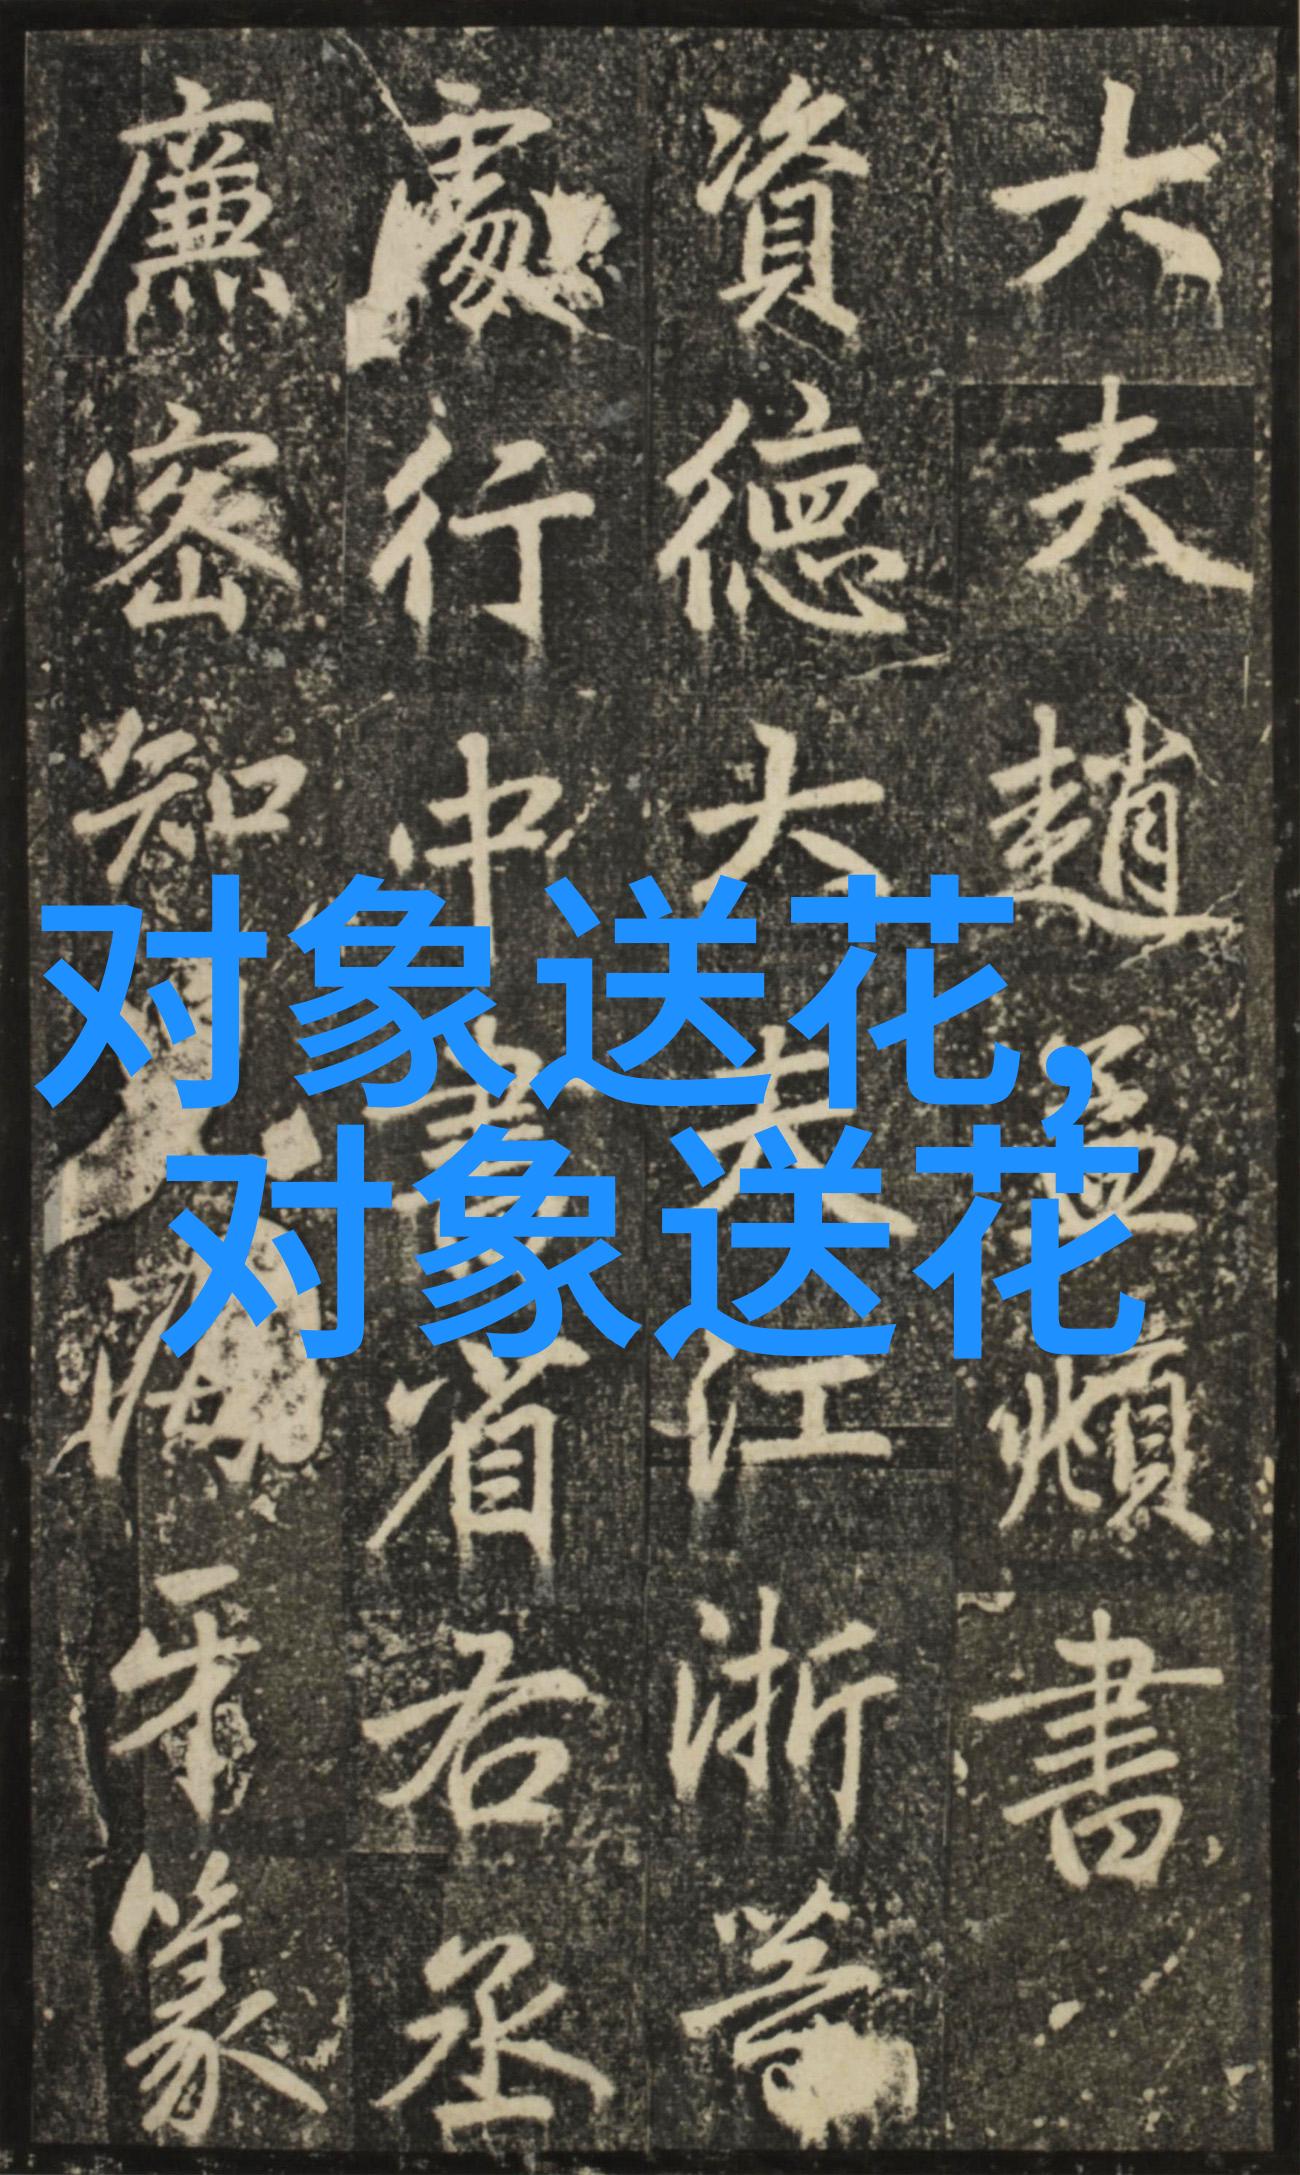 大夫趙孟頫書
資德大夫江浙等
處行中書省右丞
廉密知海牙篆
对象送花,
对象送花